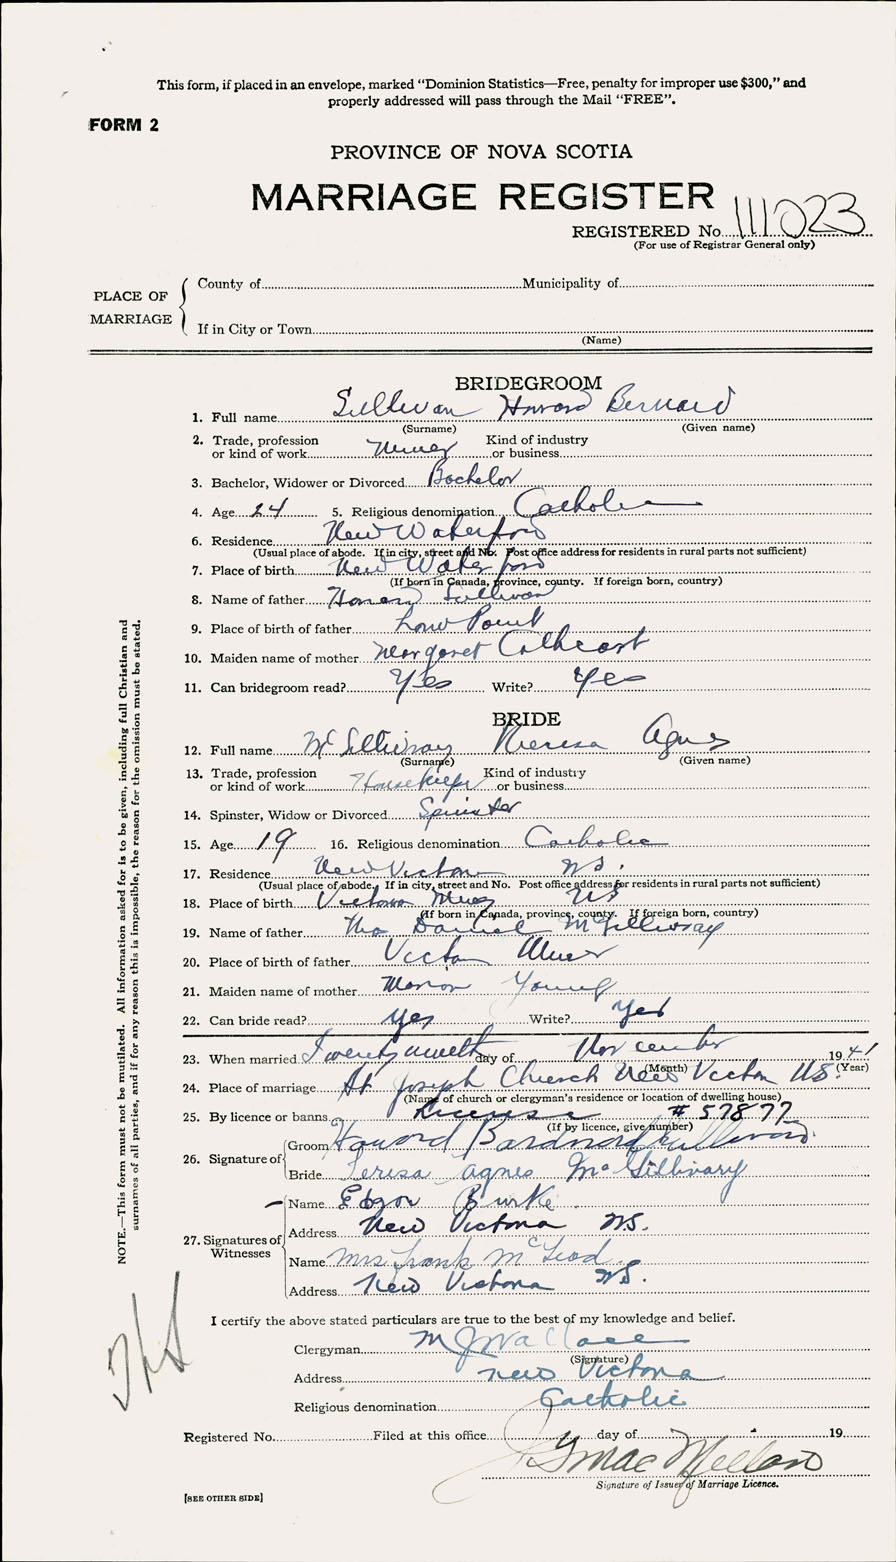 This form, if placed in an envelope, marked "Dominion Statistics—Free, penalty for improper use $300," and
properly addressed will pass through the Mail "FREE".
FORM 2
PROVINCE OF NOVA SCOTIA
MARRIAGE REGISTER
REGISTERED No. 111023
(For use of Registrar General only)
PLACE OF MARRIAGE
County of Municipality of
If in City or Town
(Name)
BRIDEGROOM
1. Full name Sullivan Howard Bernard
(Surname) (Given name)
2. Trade, profession or kind of work Miner Kind of industry or business
3. Bachelor, Widower or Divorced Bachelor
4. Age 24 5. Religious denomination Catholic
6. Residence New Waterford
(Usual place of abode. If in city, street and No. Post office address for residents in rural parts not sufficient)
7. Place of birth New Waterford
(If born in Canada, province, county. If foreign born, country)
8. Name of father Howard Sullivan
9. Place of birth of father Low Point
10. Maiden name of mother Margaret Cathcart
11. Can bridegroom read? Yes Write? Yes
BRIDE
12. Full name McGillivray Theresa Agnes
(Surname) (Given name)
13. Trade, profession or kind of work Housekeeper Kind of industry or business
14. Spinster, Widow or Divorced Spinster
15. Age 19 16. Religious denomination Catholic
17. Residence New Victoria NS.
(Usual place of abode. If in city, street and No. Post office address for residents in rural parts not sufficient)
18. Place of birth Victoria Mines NS
(If born in Canada, province, county. If foreign born, country)
19. Name of father Daniel McGillivray
20. Place of birth of father Victoria Mines
21. Maiden name of mother Marion Young
22. Can bride read? yes Write? Yes
23. When married day of November 1941
(Month) (Year)
24. Place of marriage St Joseph Church New Victoria NS.
(Name of church or clergyman's residence or location of dwelling house)
25. By licence or banns License # 57877
(If by licence, give number)
26. Signature of
Groom Howard Bardnard Sullivan
Bride Teresa Agnes McGillivary
27. Signatures of Witnesses
Name Edgar Burke
Address New Victoria NS.
Name Mrs Frank McLeod
Address New Victoria NS.
I certify the above stated particulars are true to the best of my knowledge and belief.
Clergyman M J Wallace
(Signature)
Address New Victoria
Religious denomination Catholic
Registered No. Filed at this office day of 19
Signature of Issuer of Marriage Licence.
[SEE OTHER SIDE]
NOTE.—This form must not be mutilated. All information asked for is to be given, including full Christian and
surnames of all parties, and if for any reason this is impossible, the reason for the omission must be stated.